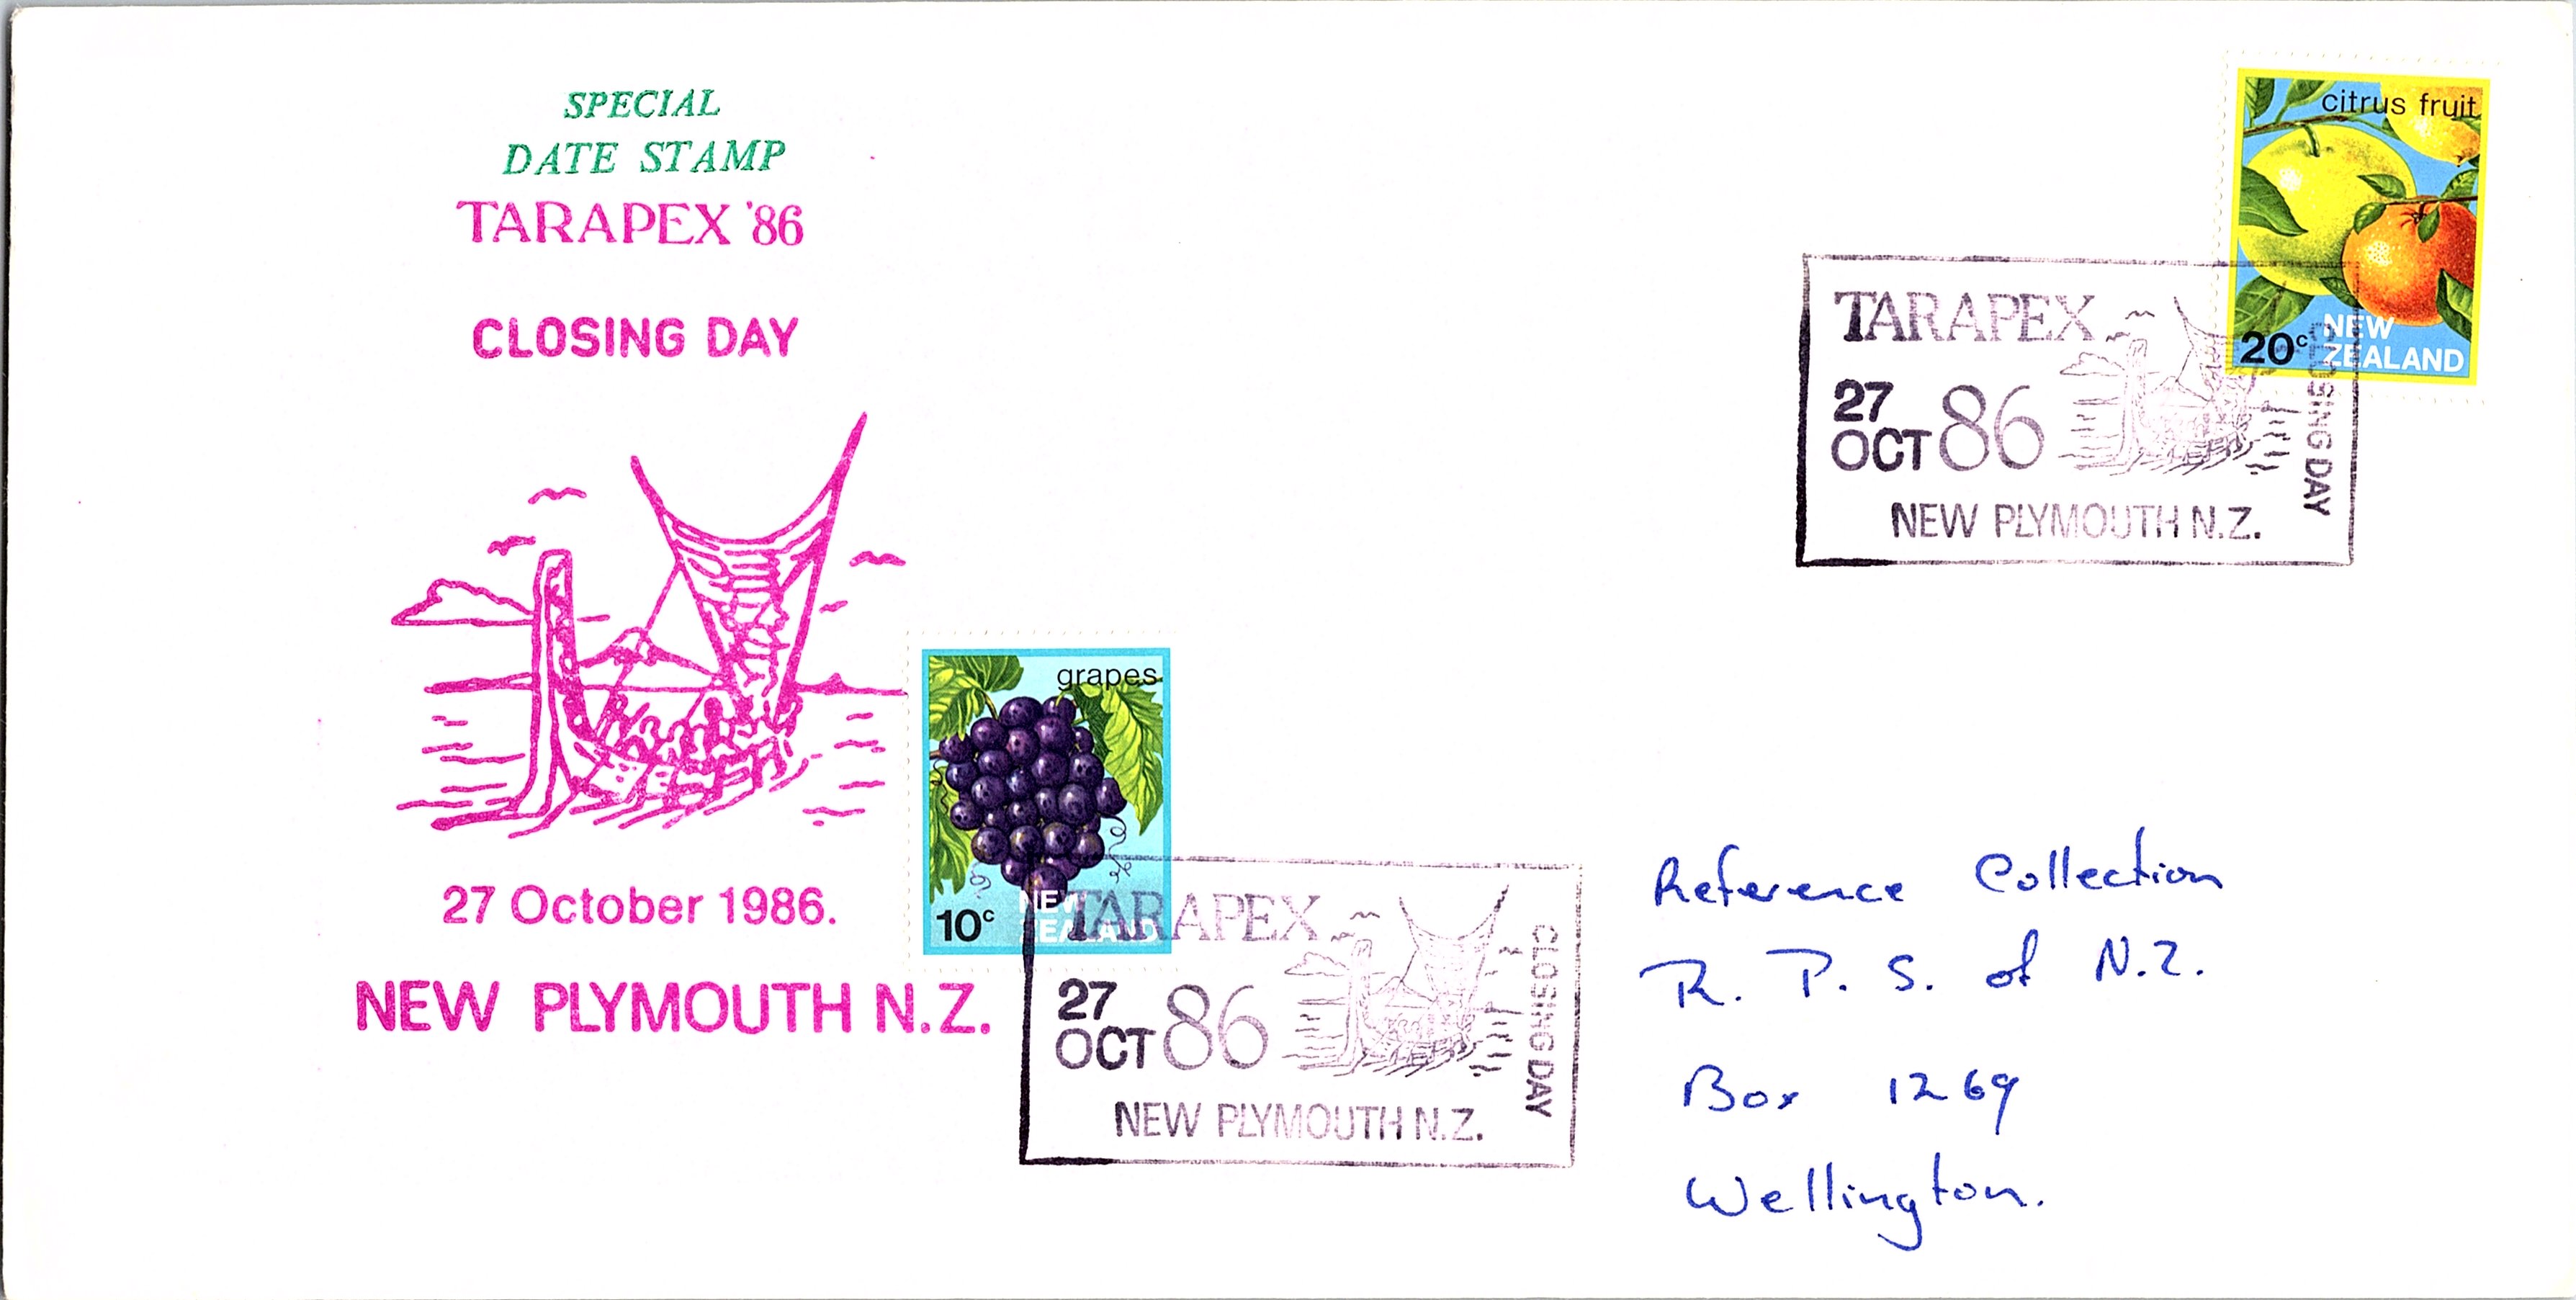 SPECIAL
DATE STAMP
TARAPEX '86
CLOSING DAY
27 October 1986.
NEW PLYMOUTH N.Z.
citrus fruit
20c
NEW
ZEALAND
TARAPEX
27
OCT 86
NEW PLYMOUTH N.Z.
CLOSING DAY
grapes
10c
NEW
ZEALAND
TARAPEX
27
OCT 86
NEW PLYMOUTH N.Z.
CLOSING DAY
Reference Collection
R. P. S. of N.Z.
Box 1269
Wellington.